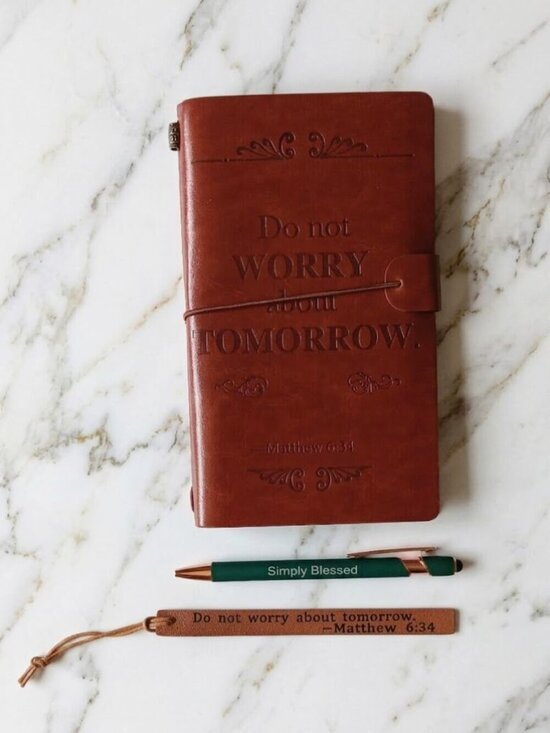 Do not
WORRY
about
TOMORROW.
—Matthew 6:34
Simply Blessed
Do not worry about tomorrow.
—Matthew 6:34